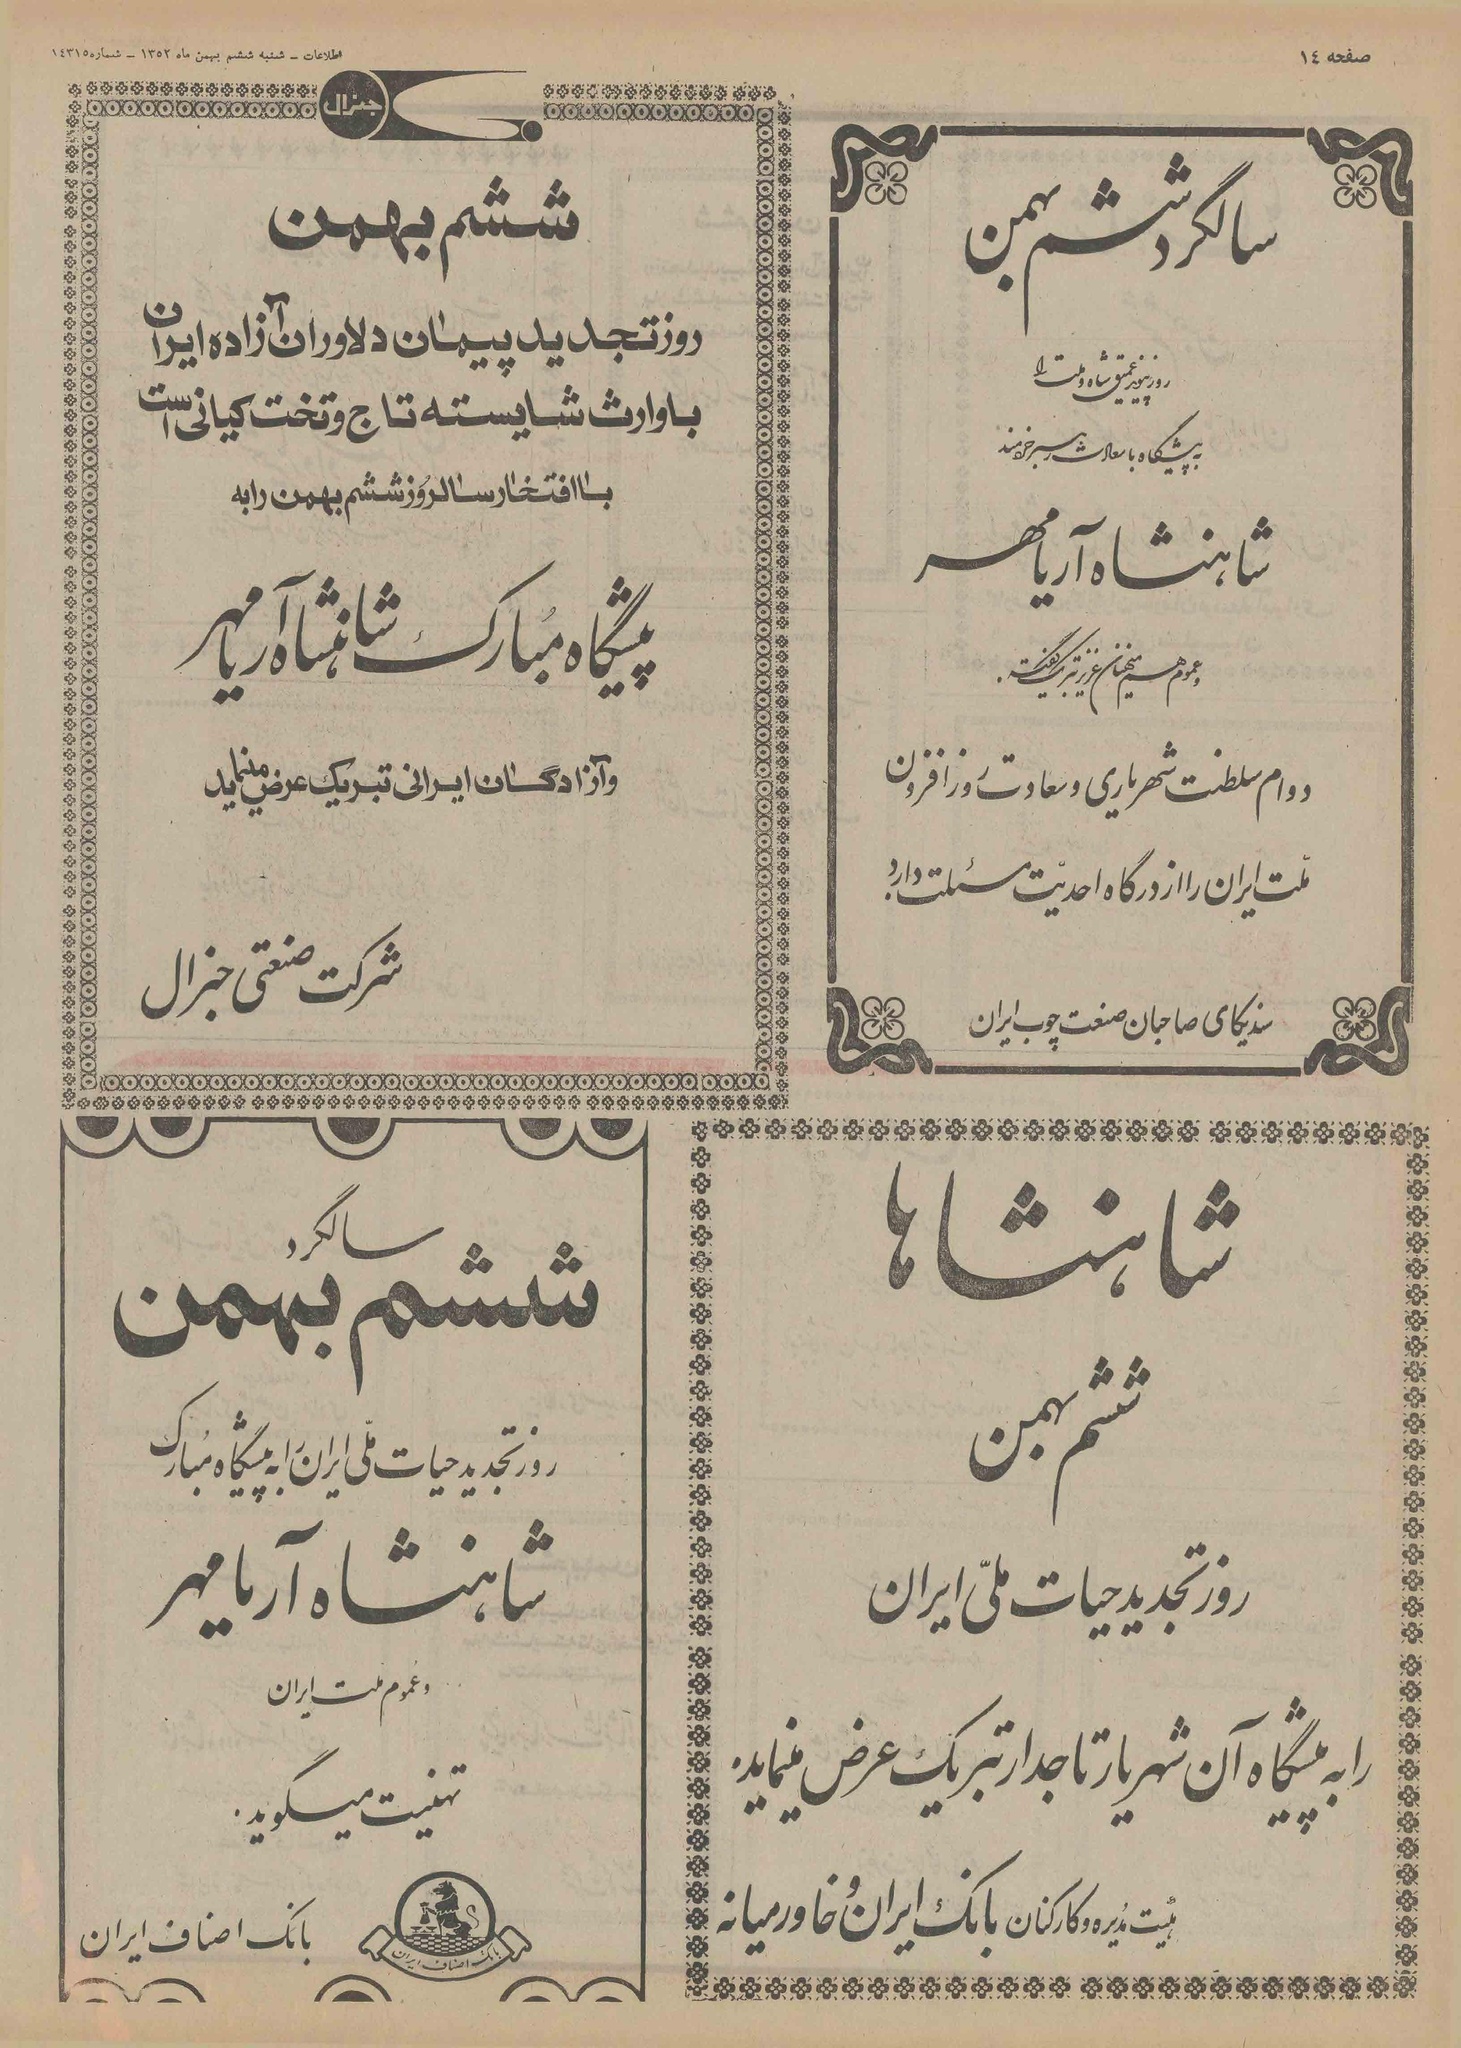 صفحه ١٤
اطلاعات ـ شنبه ششم بهمن ماه ١٣٥٢ ـ شماره ١٤٣١٥
سالگرد ششم بهمن
روز پیوند عمیق شاه و ملت را
به پیشگاه با سعادت رهبر خردمند
شاهنشاه آریامهر
و عموم هم میهنان عزیز تبریک گفته.
دوام سلطنت شهریاری و سعادت روزافزون
ملّت ایران را از درگاه احدیّت مسئلت دارد
سندیکای صاحبان صنعت چوب ایران
جنرال
ششم بهمن
روز تجدید پیمان دلاوران آزاده ایران
با وارث شایسته تاج و تخت کیانی است
با افتخار سالروز ششم بهمن را به
پیشگاه مُبارک شاهنشاه آریامهر
و آزادگان ایرانی تبریک عرض مینماید
شرکت صنعتی جنرال
شاهنشاها
ششم بهمن
روز تجدید حیات ملّی ایران
را به پیشگاه آن شهریار تاجدار تبریک عرض مینماید.
هیئت مدیره و کارکنان بانک ایران و خاورمیانه
سالگرد
ششم بهمن
روز تجدید حیات ملّی ایران را به پیشگاه مُبارک
شاهنشاه آریامهر
و عُموم ملت ایران
تهنیت میگوید.
بانک اصناف ایران
بانک اصناف ایران